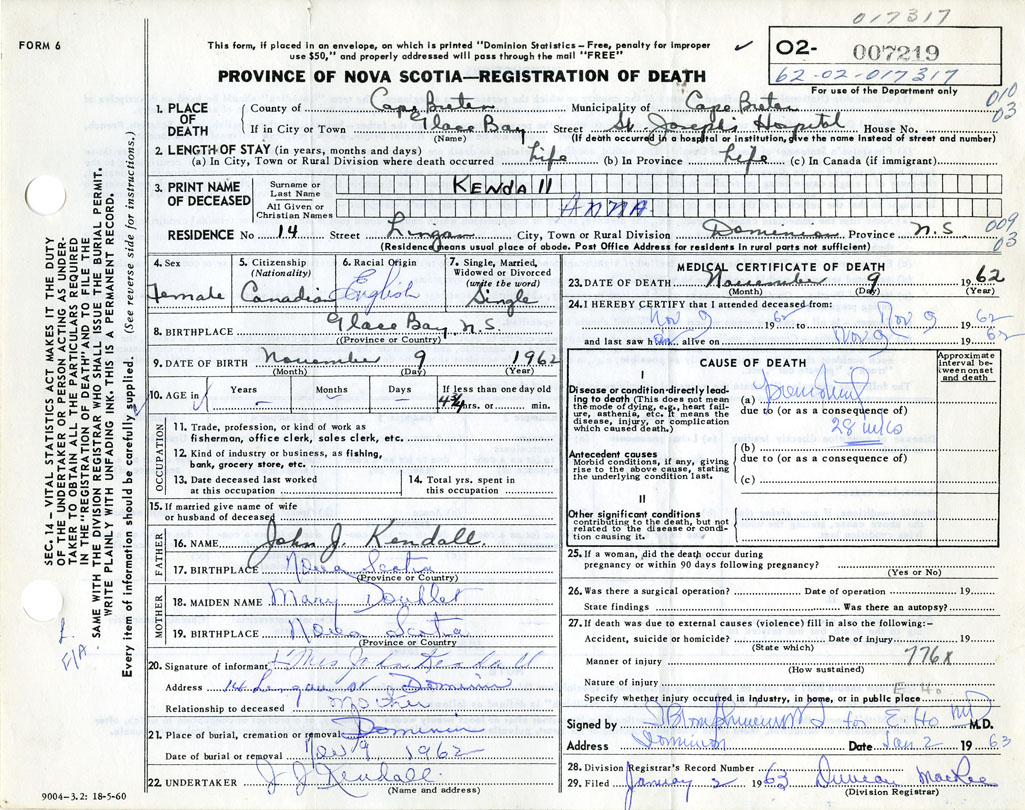 017317
FORM 6
This form, if placed in an envelope, on which is printed "Dominion Statistics – Free, penalty for improper
use $50," and properly addressed will pass through the mail "FREE"
✓
02- 007219
62-02-017317
For use of the Department only
PROVINCE OF NOVA SCOTIA—REGISTRATION OF DEATH
010
03
1. PLACE OF DEATH
County of Cape Breton Municipality of Cape Breton
If in City or Town Glace Bay Street St. Joseph's Hospital House No.
(Name) (If death occurred in a hospital or institution, give the name instead of street and number)
2. LENGTH OF STAY (in years, months and days)
(a) In City, Town or Rural Division where death occurred Life (b) In Province Life (c) In Canada (if immigrant)
3. PRINT NAME OF DECEASED
Surname or Last Name Kendall
All Given or Christian Names ANNA
RESIDENCE No 14 Street Lingan City, Town or Rural Division Dominion Province N.S.
(Residence means usual place of abode. Post Office Address for residents in rural parts not sufficient)
009
03
4. Sex
Female
5. Citizenship
(Nationality)
Canadian
6. Racial Origin
English
7. Single, Married,
Widowed or Divorced
(write the word)
Single
8. BIRTHPLACE Glace Bay, N.S.
(Province or Country)
9. DATE OF BIRTH November 9 1962
(Month) (Day) (Year)
10. AGE in
Years –
Months –
Days –
If less than one day old
4 3/4 hrs. or min.
OCCUPATION
11. Trade, profession, or kind of work as
fisherman, office clerk, sales clerk, etc.
12. Kind of industry or business, as fishing,
bank, grocery store, etc.
13. Date deceased last worked
at this occupation
14. Total yrs. spent in
this occupation
15. If married give name of wife
or husband of deceased
FATHER
16. NAME John J. Kendall
17. BIRTHPLACE Nova Scotia
(Province or Country)
MOTHER
18. MAIDEN NAME Mary
19. BIRTHPLACE Nova Scotia
(Province or Country)
20. Signature of informant Mrs John Kendall
Address 14 Lingan St Dominion
Relationship to deceased Mother
21. Place of burial, cremation or removal Dominion
Date of burial or removal Nov 9 1962
22. UNDERTAKER J J Kendall
(Name and address)
9004-3.2: 18-5-60
MEDICAL CERTIFICATE OF DEATH
23. DATE OF DEATH November 9 1962
(Month) (Day) (Year)
24. I HEREBY CERTIFY that I attended deceased from:
Nov 9 1962 to Nov 9 1962
and last saw h alive on Nov 9 1962
CAUSE OF DEATH
Approximate
interval be-
tween onset
and death
I
Disease or condition directly lead-
ing to death (This does not mean
the mode of dying, e.g., heart fail-
ure, asthenia, etc. It means the
disease, injury, or complication
which caused death.)
(a)
due to (or as a consequence of)
28
Antecedent causes
Morbid conditions, if any, giving
rise to the above cause, stating
the underlying condition last.
(b)
due to (or as a consequence of)
(c)
II
Other significant conditions
contributing to the death, but not
related to the disease or condi-
tion causing it.
25. If a woman, did the death occur during
pregnancy or within 90 days following pregnancy?
(Yes or No)
26. Was there a surgical operation? Date of operation 19
State findings Was there an autopsy?
27. If death was due to external causes (violence) fill in also the following:–
Accident, suicide or homicide? Date of injury 19
(State which)
Manner of injury 776x
(How sustained)
Nature of injury
E. Ho.
Specify whether injury occurred in industry, in home, or in public place
Signed by for E. Ho MD M.D.
Address Dominion Date Jan 2 1963
28. Division Registrar's Record Number
29. Filed January 2 1963 Duncan MacRae
(Division Registrar)
SEC. 14 – VITAL STATISTICS ACT MAKES IT THE DUTY
OF THE UNDERTAKER OR PERSON ACTING AS UNDER-
TAKER TO OBTAIN ALL THE PARTICULARS REQUIRED
IN THE "REGISTRATION OF DEATH" AND TO FILE THE
SAME WITH THE DIVISION REGISTRAR WHO SHALL ISSUE THE BURIAL PERMIT.
WRITE PLAINLY WITH UNFADING INK. THIS IS A PERMANENT RECORD.
Every item of information should be carefully supplied. (See reverse side for instructions.)